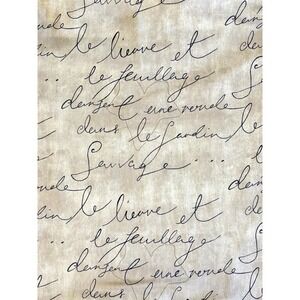 le lievre et
le feuillage
dansent une ronde
dans le Jardin
Sauvage...
le lievre et
le feuillage
dansent une ronde